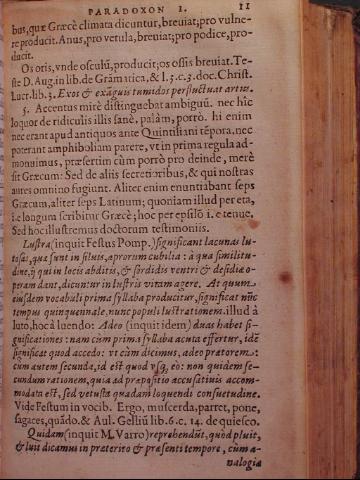 PARADOXON I. 11
bus, quæ Græcè climata dicuntur, breuiat; pro vulne-
re producit. Anus, pro vetula, breuiat; pro podice, pro-
ducit.
Os oris, vnde osculū, producit; os ossis, breuiat. Te-
ste D. Aug. in lib. de Grāmatica, & l. 3. c. 3. doc. Christ.
Lucr. lib. 3. Exos & exāguis tumidos perfluctuat artus.
5. Accentus mirè distinguebat ambiguū. nec hîc
loquor de ridiculis illis sanè, palàm, porrò. hi enim
nec erant apud antiquos ante Quintiliani tēpora, nec
poterant amphiboliam parere, vt in prima regula ad-
monuimus, præsertim cùm porrò pro deinde, merè
sit Græcum: Sed de aliis secretioribus, & qui nostras
aures omnino fugiunt. Aliter enim enuntiabant seps
Græcum, aliter seps Latinum; quoniam illud per eta,
i. e longum scribitur Græcè; hoc per epsilō i. e tenue.
Sed hoc illustremus doctorum testimoniis.
Lustra (inquit Festus Pomp.) significant lacunas lu-
tosas, quæ sunt in siluis, aprorum cubilia: à qua similitu-
dine, ij qui in locis abditis, & sordidis ventri & desidiæ o-
peram dant, dicuntur in lustris vitam agere. At quum
eiusdem vocabuli prima syllaba producitur, significat nūc
tempus quinquennale, nunc populi lustrationem. illud à
luto, hoc à luendo: Adeo (inquit idem) duas habet si-
gnificationes: nam cùm prima syllaba acuta effertur, idē
significat quod accedo: vt cùm dicimus, adeo prætorem:
cum autem secunda, id est quod vsq; eò: non quidem se-
cundum rationem, quia ad præpositio accusatiuis accom-
modata est, sed vetusta quadam loquendi consuetudine.
Vide Festum in vocib. Ergo, muscerda, parret, pone,
sagaces, quādo. & Aul. Gelliū lib. 6. c. 14. de quiesco.
Quidam (inquit M. Varro) reprehendūt, quòd pluit,
& luit dicamus in præterito & præsenti tempore, cùm a-
nalogiæ